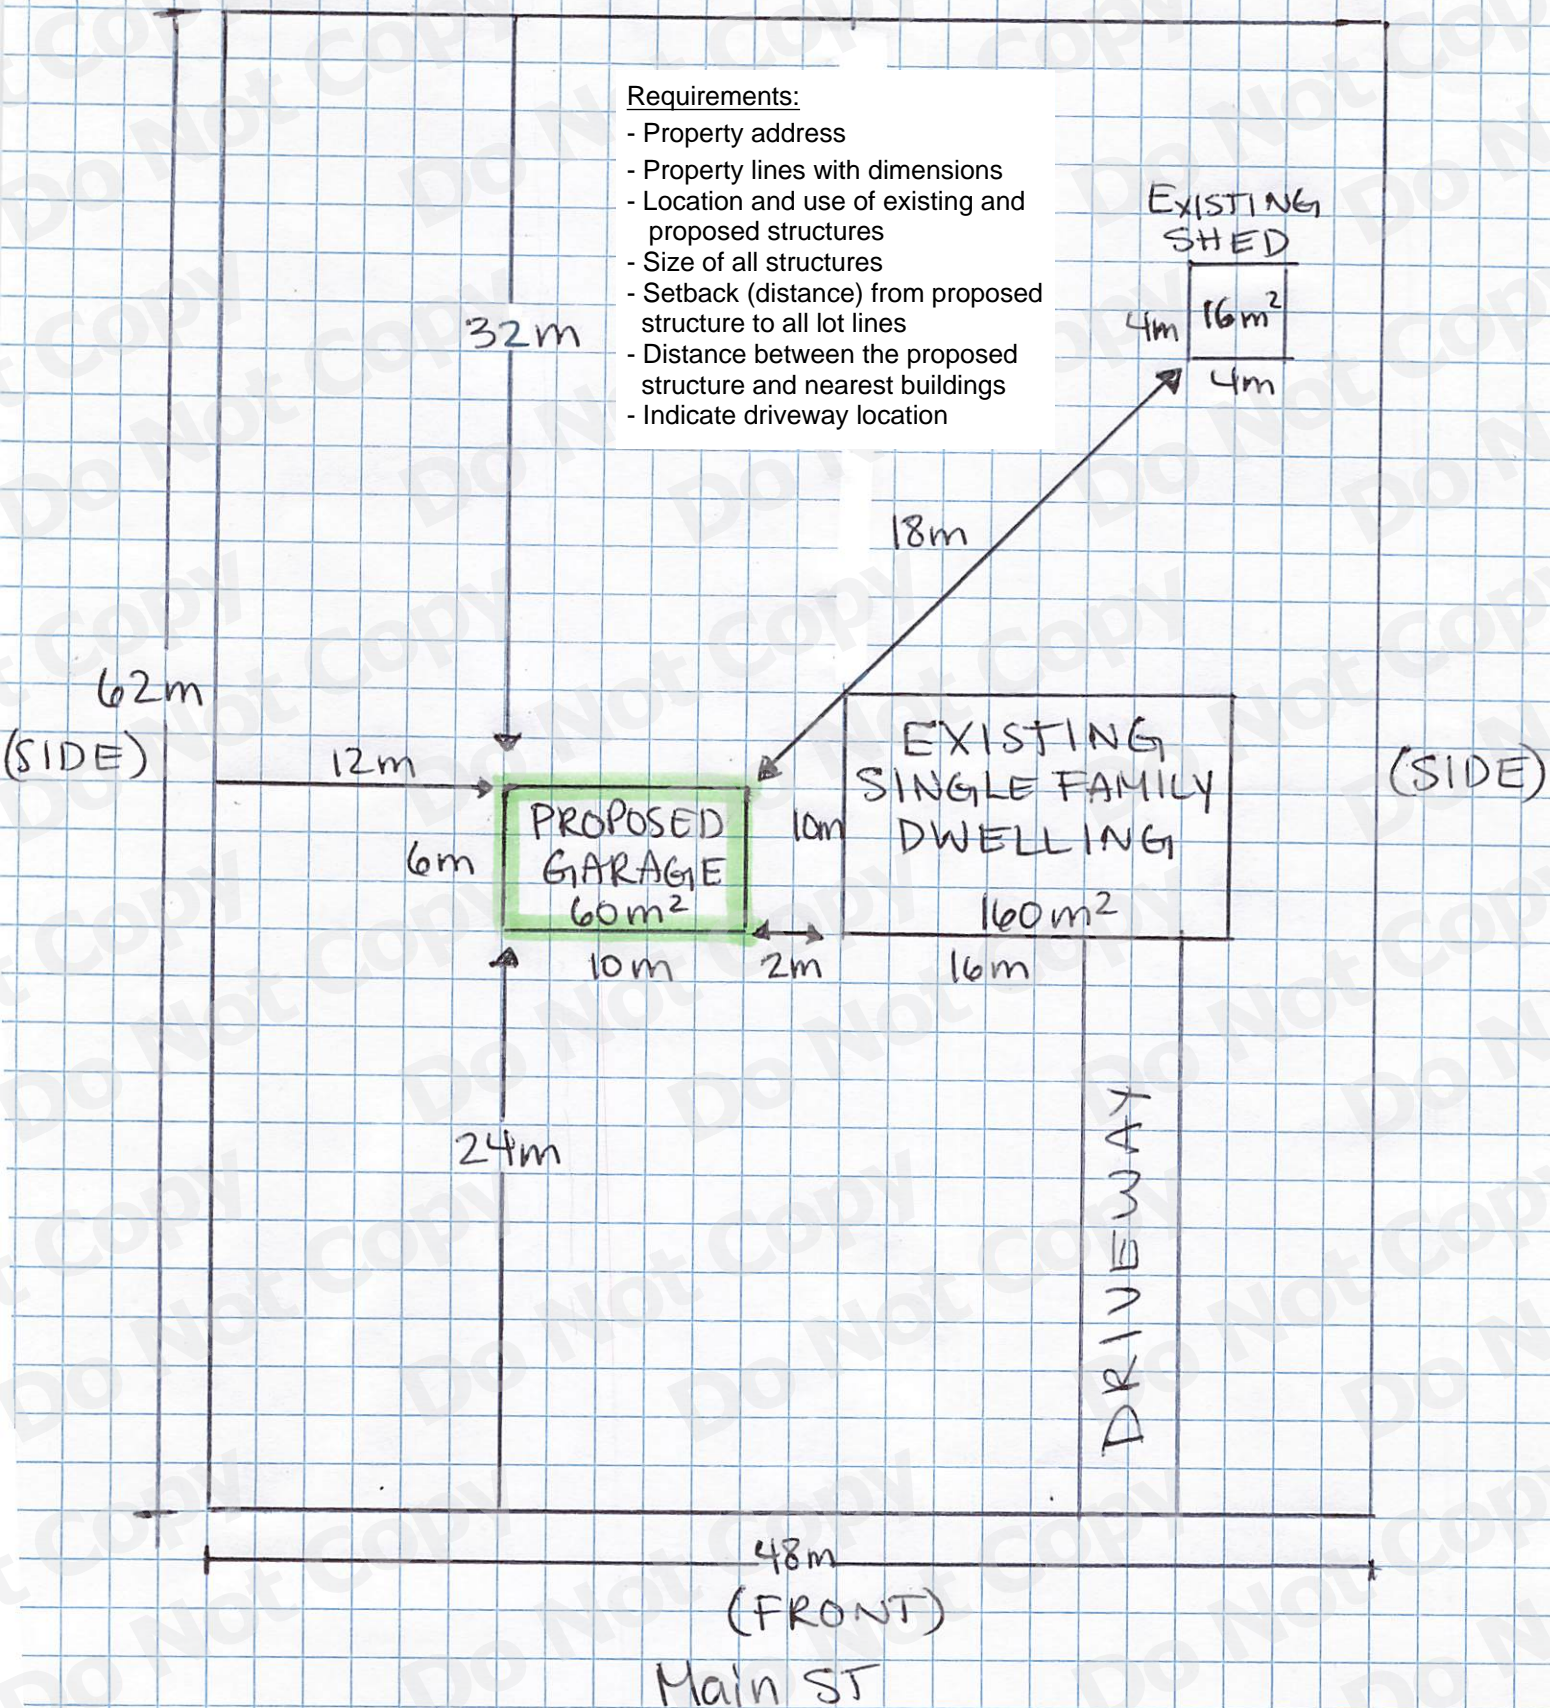 Requirements:
- Property address
- Property lines with dimensions
- Location and use of existing and
proposed structures
- Size of all structures
- Setback (distance) from proposed
structure to all lot lines
- Distance between the proposed
structure and nearest buildings
- Indicate driveway location
EXISTING
SHED
4m
16m²
4m
32m
18m
62m
(SIDE)
12m
6m
PROPOSED
GARAGE
60m²
10m
2m
10m
EXISTING
SINGLE FAMILY
DWELLING
160m²
16m
(SIDE)
24m
DRIVEWAY
48m
(FRONT)
Main ST
Do Not Copy